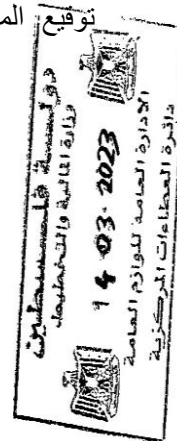 توقيع
دولة فلسطين
وزارة المالية والتخطيط
14 -03- 2023
الادارة العامة للوازم العامة
دائرة العطاءات المركزية